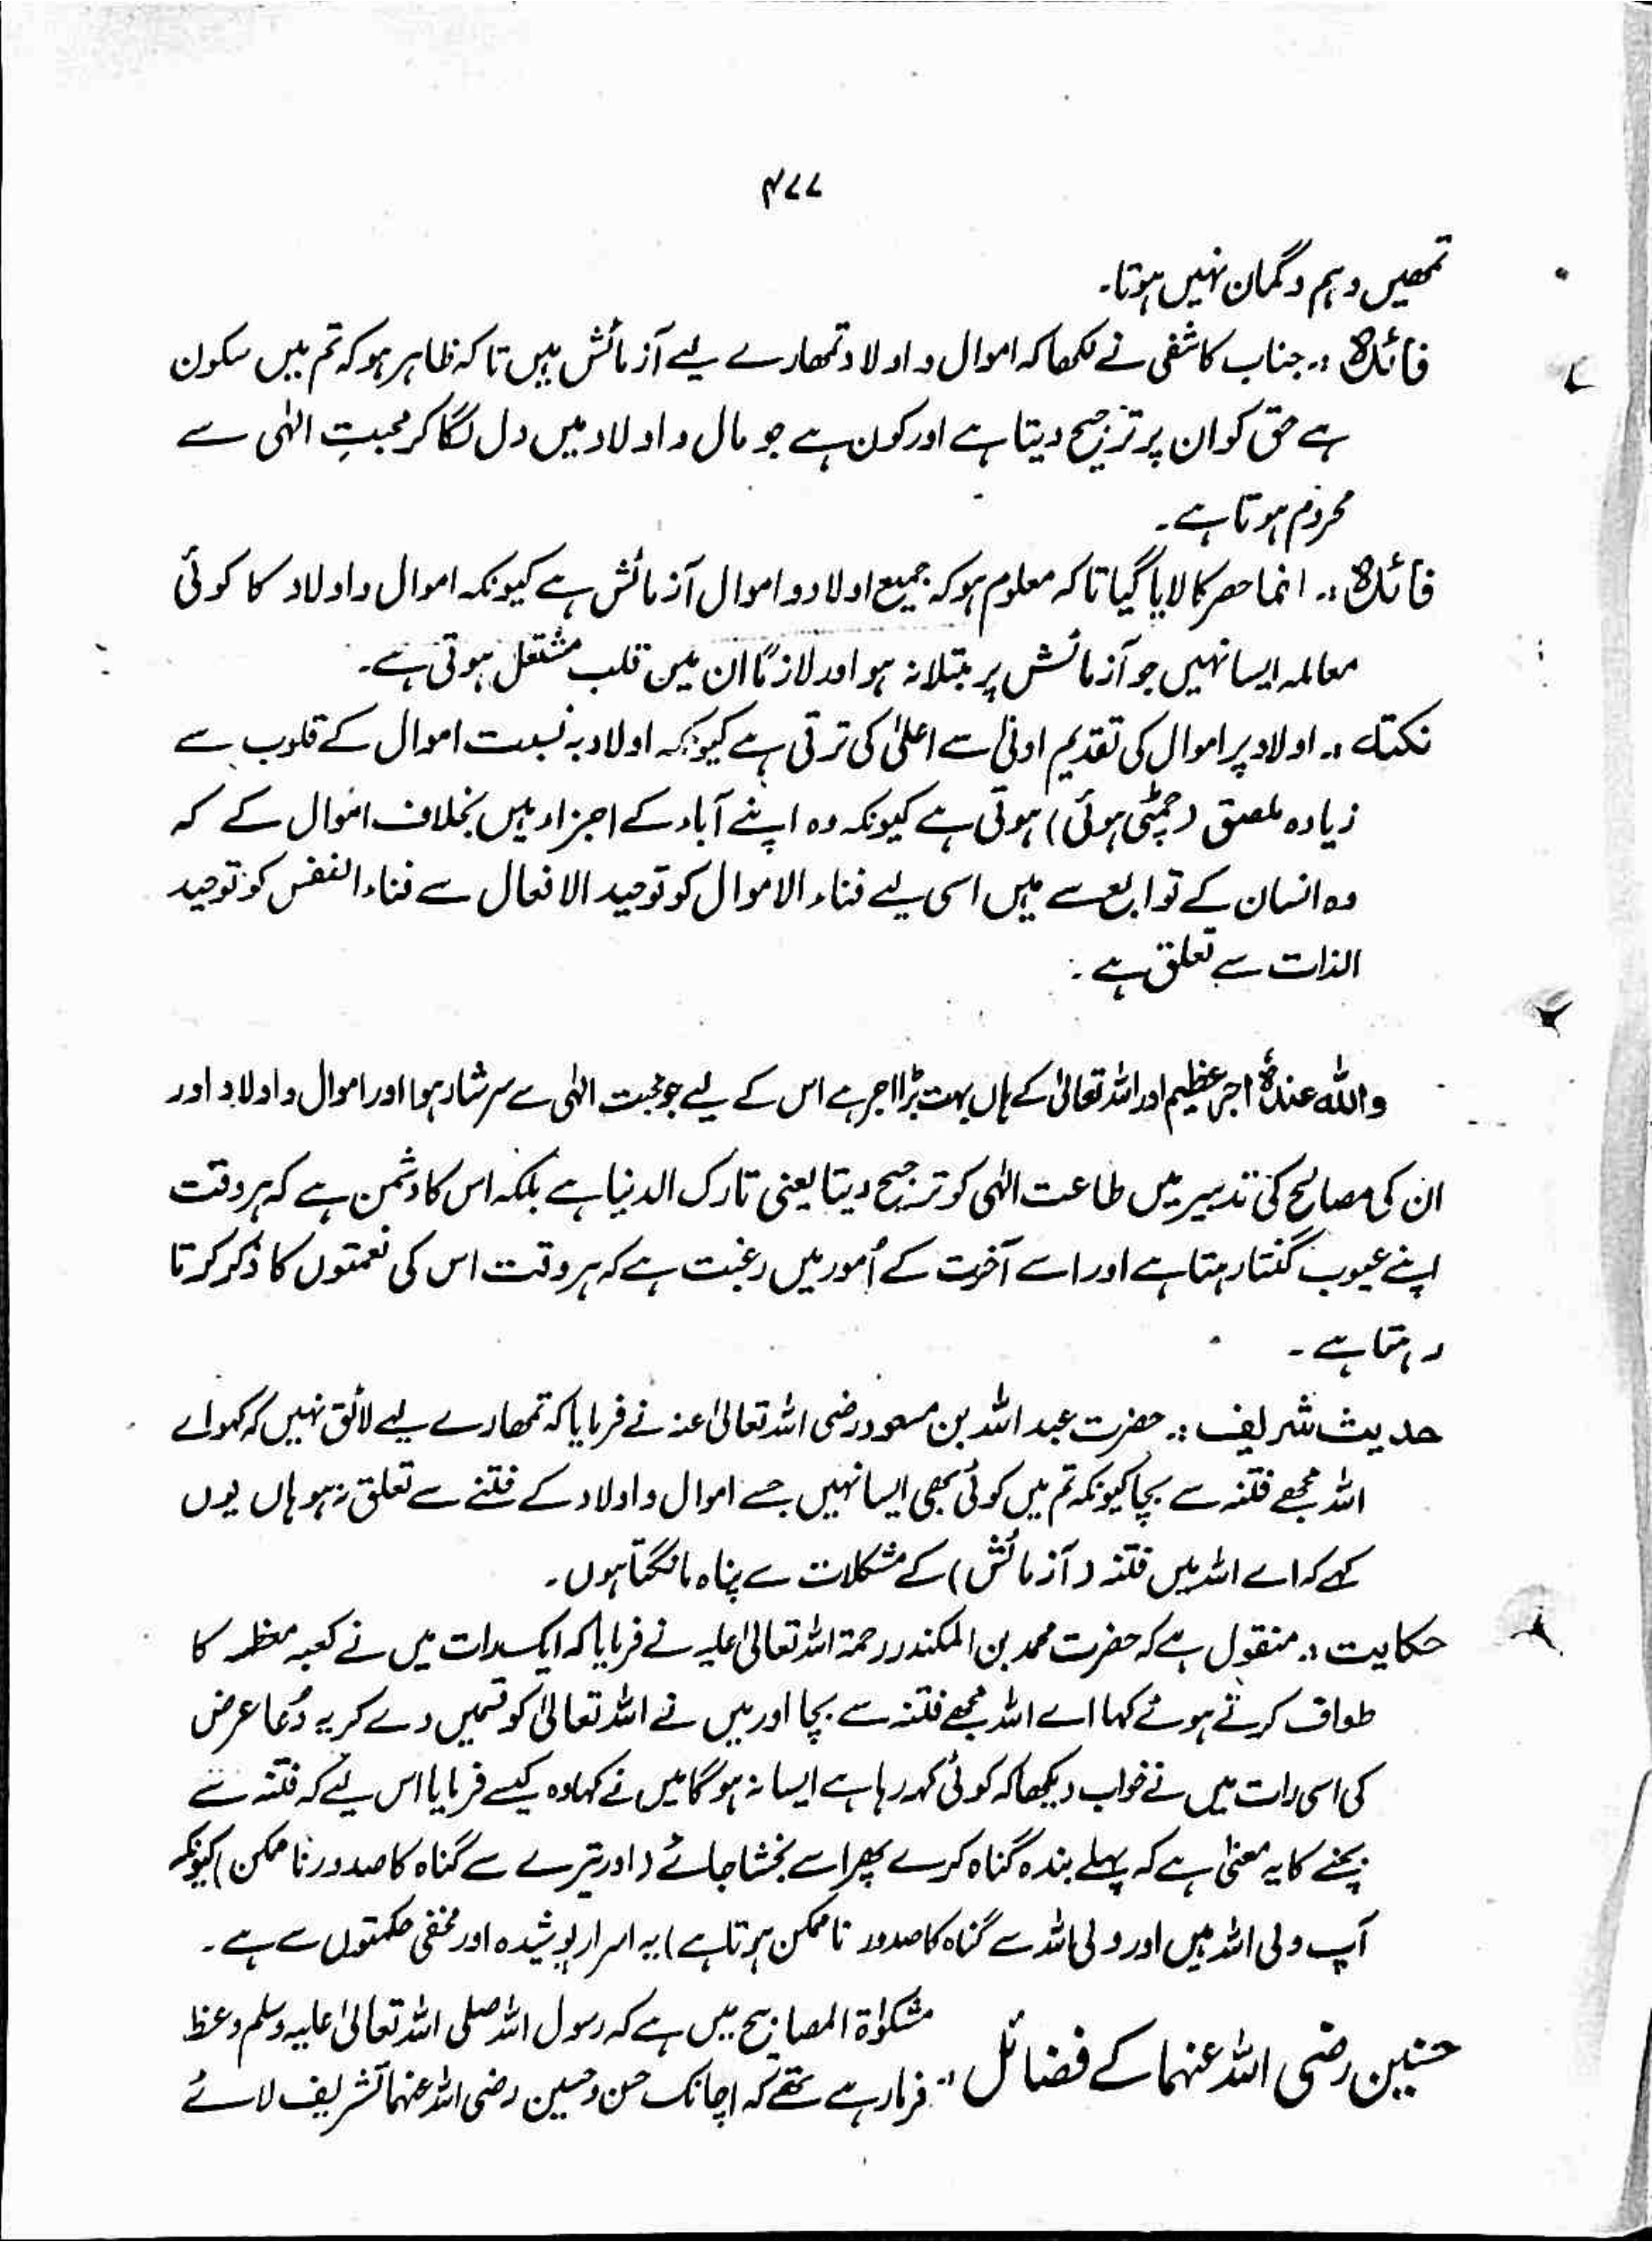 ۴۷۷
تمھیں وہم وگمان نہیں ہوتا۔
فائدہ :۔ جناب کاشفی نے لکھا کہ اموال و اولاد تمھارے لیے آزمائش ہیں تاکہ ظاہر ہو کہ تم میں سکون
ہے حق کو ان پر ترجیح دیتا ہے اور کون ہے جو مال و اولاد میں دل لگا کر محبتِ الٰہی سے
محروم ہوتا ہے۔
فائدہ :۔ انما حصر کا لایا گیا تاکہ معلوم ہو کہ جمیع اولاد و اموال آزمائش ہے کیونکہ اموال و اولاد کا کوئی
معاملہ ایسا نہیں جو آزمائش پر مبتلا نہ ہو اور لازمًا ان میں قلب مشتغل ہوتی ہے۔
نکتہ :۔ اولاد پر اموال کی تقدیم ادنیٰ سے اعلیٰ کی ترقی ہے کیونکہ اولاد بہ نسبت اموال کے قلوب سے
زیادہ ملصق (چمٹی ہوئی) ہوتی ہے کیونکہ وہ اپنے آباء کے اجزاء ہیں بخلاف اموال کے کہ
وہ انسان کے توابع سے ہیں اسی لیے فناء الاموال کو توحید الافعال سے فناء النفس کو توحید
الذات سے تعلق ہے۔
واللہ عندہٗ اجر عظیم اور اللہ تعالیٰ کے ہاں بہت بڑا اجر ہے اس کے لیے جو محبت الٰہی سے سرشار ہوا اور اموال و اولاد اور
ان کی مصالح کی تدبیر میں طاعت الٰہی کو ترجیح دیتا یعنی تارک الدنیا ہے بلکہ اس کا دشمن ہے کہ ہر وقت
اپنے عیوب گنتا رہتا ہے اور اسے آخرت کے اُمور میں رغبت ہے کہ ہر وقت اس کی نعمتوں کا ذکر کرتا
رہتا ہے۔
حدیث شریف :۔ حضرت عبد اللہ بن مسعود رضی اللہ تعالیٰ عنہ نے فرمایا کہ تمھارے لیے لائق نہیں کہ کہو اے
اللہ مجھے فتنہ سے بچا کیونکہ تم میں کوئی بھی ایسا نہیں جسے اموال و اولاد کے فتنے سے تعلق نہ ہو ہاں یوں
کہے کہ اے اللہ میں فتنہ (آزمائش) کے مشکلات سے پناہ مانگتا ہوں۔
حکایت :۔ منقول ہے کہ حضرت محمد بن المکندر رحمۃ اللہ تعالیٰ علیہ نے فرمایا کہ ایک رات میں نے کعبہ معظمہ کا
طواف کرتے ہوئے کہا اے اللہ مجھے فتنہ سے بچا اور میں نے اللہ تعالیٰ کو قسمیں دے کر یہ دُعا عرض
کی اسی رات میں نے خواب دیکھا کہ کوئی کہہ رہا ہے ایسا نہ ہوگا میں نے کہا وہ کیسے فرمایا اس لیے کہ فتنہ سے
بچنے کا یہ معنیٰ ہے کہ پہلے بندہ گناہ کرے پھر اسے بخشا جائے (اور تیرے سے گناہ کا صدور ناممکن) کیونکہ
آپ ولی اللہ ہیں اور ولی اللہ سے گناہ کا صدور ناممکن ہوتا ہے) یہ اسرار پوشیدہ اور مخفی حکمتوں سے ہے۔
حسنین رضی اللہ عنہما کے فضائل :۔ مشکوٰۃ المصابیح میں ہے کہ رسول اللہ صلی اللہ تعالیٰ علیہ وسلم وعظ
فرما رہے تھے کہ اچانک حسن و حسین رضی اللہ عنہما تشریف لائے